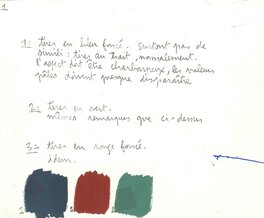 1
1: tirer en bleu foncé. surtout pas de
simili : tirer au trait, normalement.
l'aspect doit être charbonneux, les valeurs
pâles doivent presque disparaître
2: tirer en vert.
mêmes remarques que ci-dessus
3: tirer en rouge foncé.
idem.